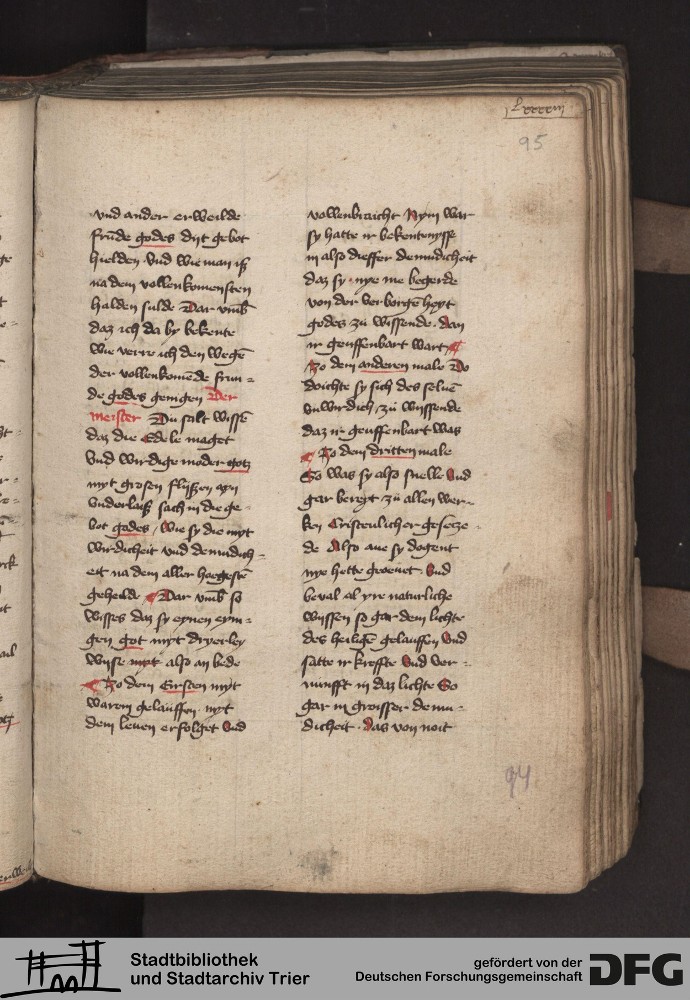 95
vnd ander erweilde
frūde godes diit gebot
hielden · Vnd wie man iß
na dem vollenkomensten
halden sulde Dar vmb
daz ich da by bekente
wie verre ich den wegē
der vollenkomēde frun-
de godes genigen Der
meister Du salt wissē
daz die Edele maget
Vnd wirdige moder gotz
myt grosen flijßen
vnderlaiß sach in die ge-
bot godes / Wie sy die myt
wirdicheit vnd demudich-
eit na dem aller hoegestē
gehielde Dar vmb so
wisses daz sy eynen eyni-
gen got myt dryerley
wyse also an bede
Zo dem Eirsten myt
warem gelauffen · myt
dem leuen erfolget Vnd
vollenbraicht Nym war
sy hatte ir bekentenysse
in also diesser demudicheit
daz sy · nye me begerde
von der verborgēheyt
godes zu wissende · dan
ir geuffenbart wart
Zo dem anderen male Do
doichte sy sich des seluē
vnwirdich zu wyssende
daz ir geuffenbart was
Zo dem dritten male
So was sy also snelle Vnd
gar bereyt zu allen wer-
ken Cristenlicher gesetze-
de Also aue sy dogent
nye hette geoeuet · Vnd
beual al yre naturliche
wyssen so gar dem lichte
des heiligē gelauffen Vnd
satte ir kreffte Vnd ver-
nunfft in daz lichte So
gar in groisser demu-
dicheit · Das von noit
94
Stadtbibliothek
und Stadtarchiv Trier
gefördert von der
Deutschen Forschungsgemeinschaft
DFG